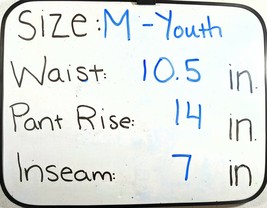 Size: M - Youth
Waist: 10.5 in.
Pant Rise: 14 in.
Inseam: 7 in